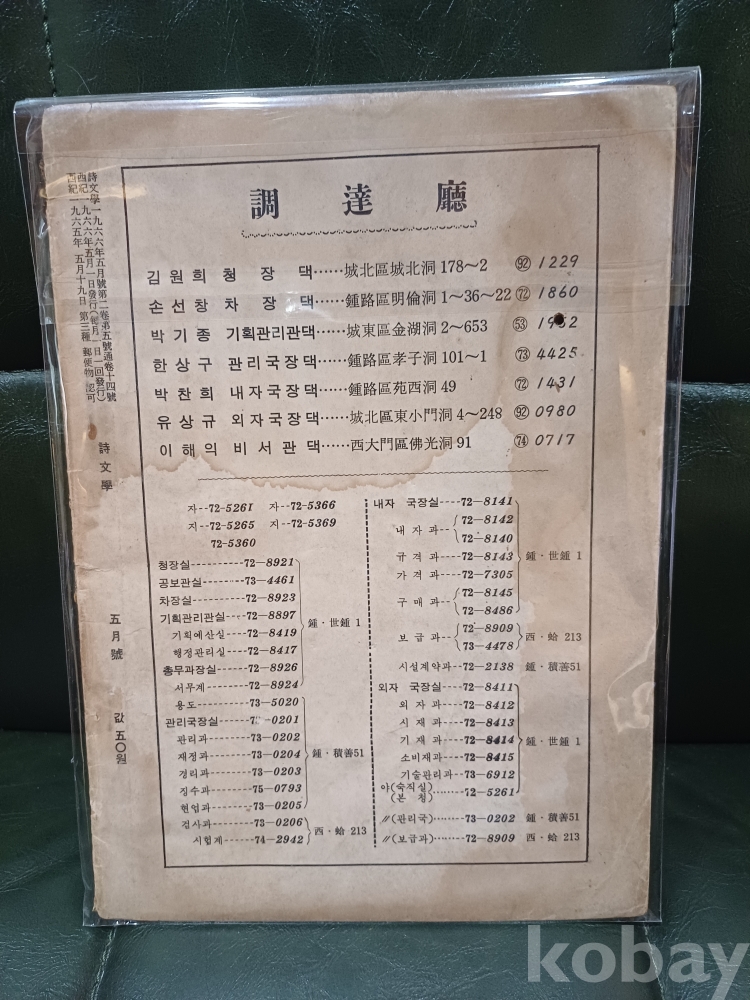 調達廳
김원희 청장댁……城北區城北洞 178~2 ㉒ 1229
손선창 차장댁……鍾路區明倫洞 1~36~22 72 1860
박기종 기획관리관댁……城東區金湖洞 2~653 53
한상구 관리국장댁……鍾路區孝子洞 101~1 73 4425
박찬희 내자국장댁……鍾路區苑西洞 49 72 1431
유상규 외자국장댁……城北區東小門洞 4~248 92 0980
이해의 비서관댁……西大門區佛光洞 91 74 0717
자--72-5261 자--72-5366
지--72-5265 지--72-5369
72-5360
청장실----------72-8921
공보관실--------73-4461
차장실----------72-8923
기획관리관실----72-8897
기획예산실----72-8419
행정관리실----72-8417
총무과장실------72-8926
서무계--------72-8924
鍾·世鍾 1
용도----------73-5020
관리국장실------ -0201
관리과--------73-0202
재정과--------73-0204
경리과--------73-0203
징수과--------75-0793
현업과--------73-0205
鍾·積善51
검사과--------73-0206
시험계------74-2942
西·蛤 213
내자 국장실----72-8141
내자과-- 72-8142
72-8140
규격과----72-8143
가격과----72-7305
구매과-- 72-8145
72-8486
鍾·世鍾 1
보급과-- 72-8909
73-4478
西·蛤 213
시설계약과--72-2138 鍾·積善51
외자 국장실----72-8411
외자과----72-8412
시재과----72-8413
기재과----72-8414
소비재과----72-8415
기술관리과--73-6912
야(숙직실)
(본청)………72-5261
鍾·世鍾 1
〃(관리국)………73-0202 鍾·積善51
〃(보급과)………72-8909 西·蛤 213
詩文學一九六六年五月號第二卷第五號通卷十四號
西紀一九六六年五月一日發行(每月一日一回發行)
西紀一九六五年 五月十九日 第三種 郵便物 認可
詩文學
五月號
값 五〇원
kobay